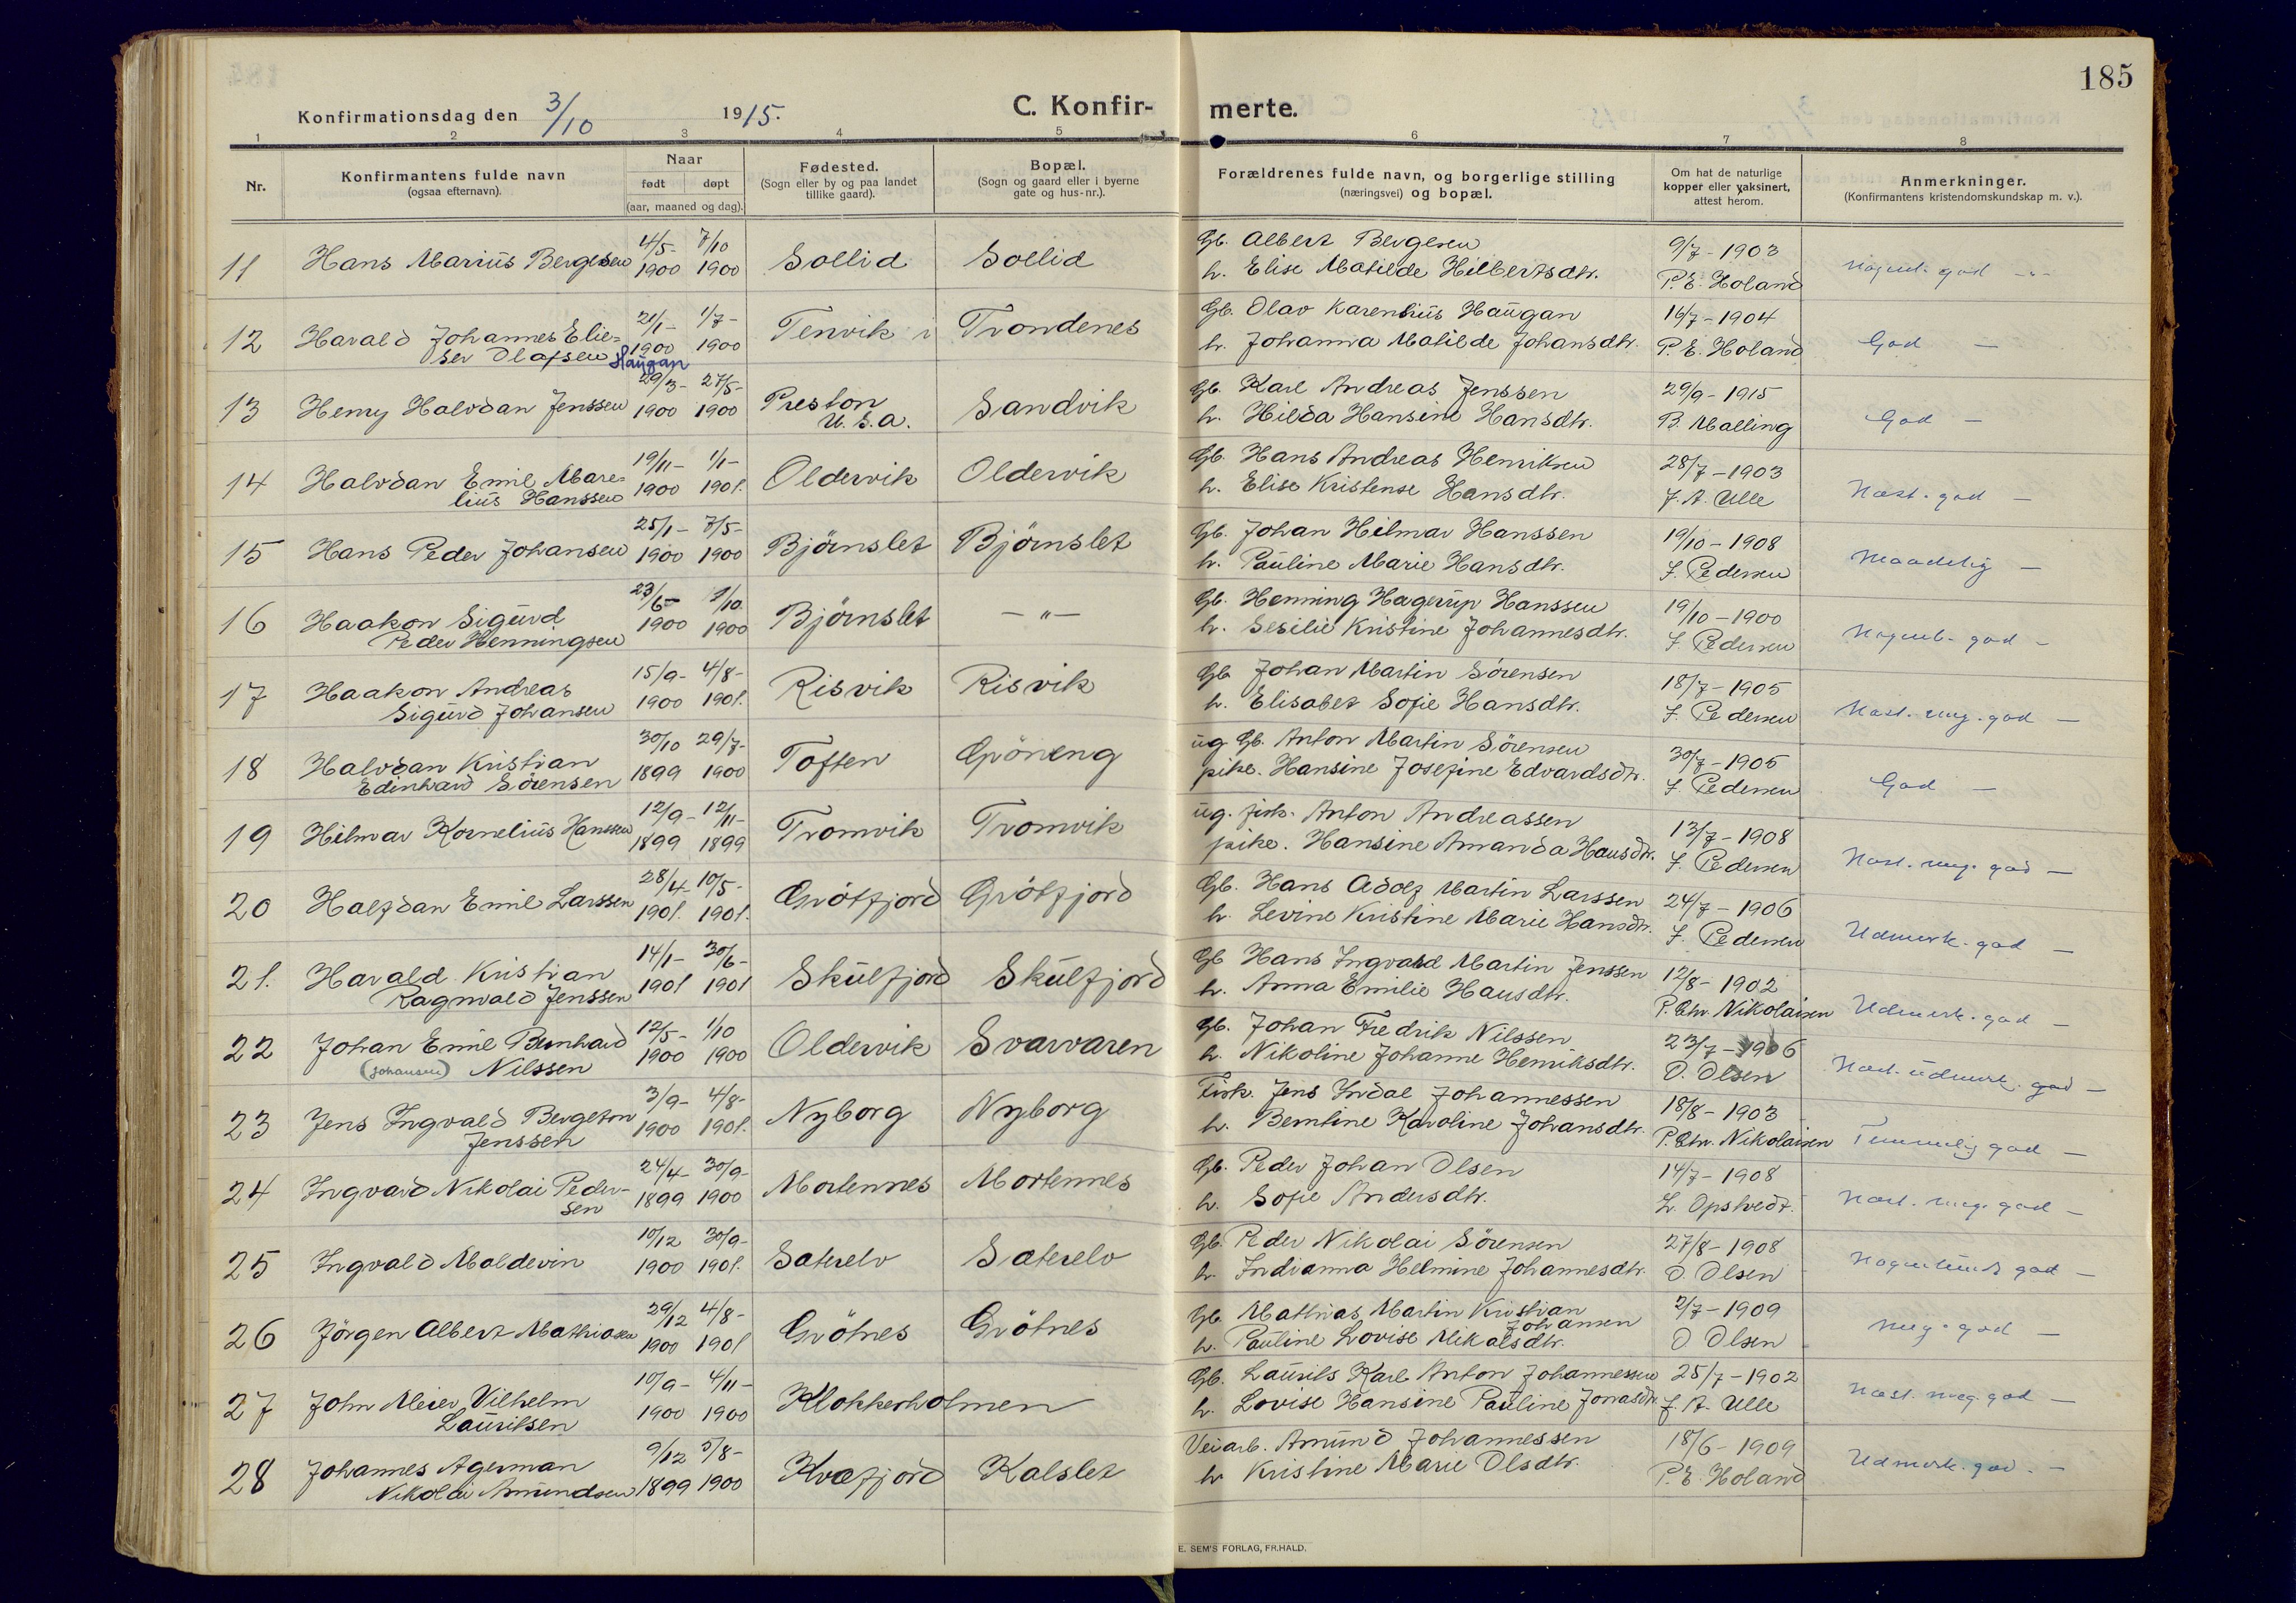 185
Konfirmationsdag den 3/10 1915. C. Konfirmerte.
1 2 3 4 5 6 7 8
Nr.
Konfirmantens fulde navn
(ogsaa efternavn).
Naar
født døpt
(aar, maaned og dag).
Fødested.
(Sogn eller by og paa landet
tillike gaard).
Bopæl.
(Sogn og gaard eller i byerne
gate og hus-nr.).
Forældrenes fulde navn, og borgerlige stilling
(næringsvei) og bopæl.
Om hat de naturlige
kopper eller vaksinert,
attest herom.
Anmerkninger.
(Konfirmantens kristendomskundskap m. v.).
11 Hans Marius Bergesen 4/5- 1900 7/10 1900 Sollid Sollid
Gb. Albert Bergesen
h. Elise Matilde Hilbertsdtr.
9/7-1903
P. E. Holand
god
12 Harald Johannes Elie=
ser Olafsen Haugan
21/1- 1900 1/7- 1900 Tenvik i Trondenes
Gb. Olav Karenlius Haugan
h. Johanna Matilde Johansdtr.
16/7-1904
P. E. Holand
God -
13 Henry Halvdan Jenssen 29/3- 1900 27/5- 1900 Preston
U. S. a.
Sandvik
Gb. Karl Andreas Jenssen
h. Hilda Hansine Hansdtr.
29/9-1915
B. Malling
God -
14 Halvdan Emil Mare=
lius Hanssen
19/11- 1900 1/1- 1901. Oldervik Oldervik
Gb. Hans Andreas Henriksen
h. Elise Kristense Hansdtr.
28/7-1903
J. A. Ulle
Næst. god -
15 Hans Peder Johansen 25/1- 1900 7/5- 1900 Björnslet Björnslet
Gb. Johan Hilmar Hanssen
h. Pauline Marie Hansdtr.
19/10-1908
J. Pedersen
Maadelig -
16 Haakon Sigurd
Peder Henningsen
23/6- 1900 7/10. 1900 Björnslet -"-
Gb. Henning Hagerup Hanssen
h. Sesilie Kristine Johannesdtr.
19/10-1900
J. Pedersen
god -
17 Haakon Andreas
Sigurd Johansen
15/9- 1900 4/8- 1901. Risvik Risvik
Gb. Johan Martin Sörensen
h. Elisabet Sofie Hansdtr.
18/7-1905
J. Pedersen
Næst. meg. god -
18 Halvdan Kristian
Edinhard Sörensen
30/10 1899 29/7- 1900 Toften Gröneng
ug Gb. Anton Martin Sörensen
pike. Hansine Josefine Edvardsdtr.
30/7-1905
J. Pedersen
God -
19 Hilmar Kornelius Hanssen 12/9- 1899 12/11- 1899 Tromvik Tromvik
ug. fisk. Anton Andreassen
pike. Hansine Amanda Hansdtr.
13/7-1908
J. Pedersen
Næst. meg. god -
20 Halfdan Emil Larssen 28/4- 1901. 10/5- 1901. Grötfjord Grötfjord
Gb. Hans Adolf Martin Larssen
h. Levine Kristine Marie Hansdtr.
24/7-1906
J. Pedersen
Udmerk. god -
21. Harald Kristian
Ragnvald Jenssen
14/1- 1901 30/6- 1901 Skulfjord Skulfjord
Gb Hans Ingvald Martin Jenssen
h. Anna Emilie Hansdtr.
12/8-1902
P. Chr. Nikolaisen
Udmerk. god -
22 Johan Emil Bernhard
(Johansen) Nilssen
12/5- 1900 1/10 1900 Oldervik Svarvaren
Gb. Johan Fredrik Nilssen
h. Nikoline Johanne Henriksdtr.
23/7-1906
O. Olsen
Næst. udmerk. god -
23 Jens Ingvald Bergeton
Jenssen
3/9- 1900 4/8- 1901. Nyborg Nyborg
Fisk. Jens Indal Johannessen
h. Berntine Karoline Johansdtr.
18/8-1903
P. Chr. Nikolaisen
Temmelig god -
24 Ingvard Nikolai Peder-
sen
24/4- 1899 30/9- 1900 Mortennes Mortennes
Gb. Peder Johan Olsen
h. Sofie Andersdtr.
14/7-1908
L. Opstvedt.
Næst. meg. god -
25 Ingvald Moldevin 10/12 1900 30/9- 1901. Saterelv Saterelv
Gb. Peder Nikolai Sörensen
h. Indianna Helmine Johannesdtr.
27/8-1908
O. Olsen
Nogenlunde god -
26 Jörgen Albert Mathiasen 29/12 1900 4/8- 1901 Grötnes Grötnes
Gb. Mathias Martin Kristian
Johansen
h. Pauline Lovise Mikalsdtr.
2/7-1909
O Olsen
Meg. god -
27 John Meier Vilhelm
Lauritsen
10/9- 1900 4/11- 1900 Klokkerholmen
Gb. Laurits Karl Anton Johannessen
h. Lovise Hansine Pauline Jonasdtr.
25/7-1902
J. A. Ulle
Næst. meg. god -
28 Johannes Agerman
Nikolai Amundsen
9/12 1899 5/8- 1900 Kvæfjord Kalslet
Veiarb. Amund Johannessen
h. Kristine Marie Olsdtr.
18/6-1909
P. E. Holand
Udmerk. god. -
E. SEM'S FORLAG, FR.HALD.